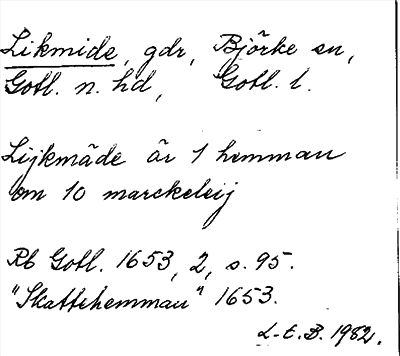 Likmide, gdr, Björke sn,
Gotl. n. hd, Gotl. l.
Lijkmäde är 1 hemman
om 10 marckeleij
Rb Gotl. 1653, 2, s. 95.
"Skattehemman" 1653.
L-E.B. 1982.